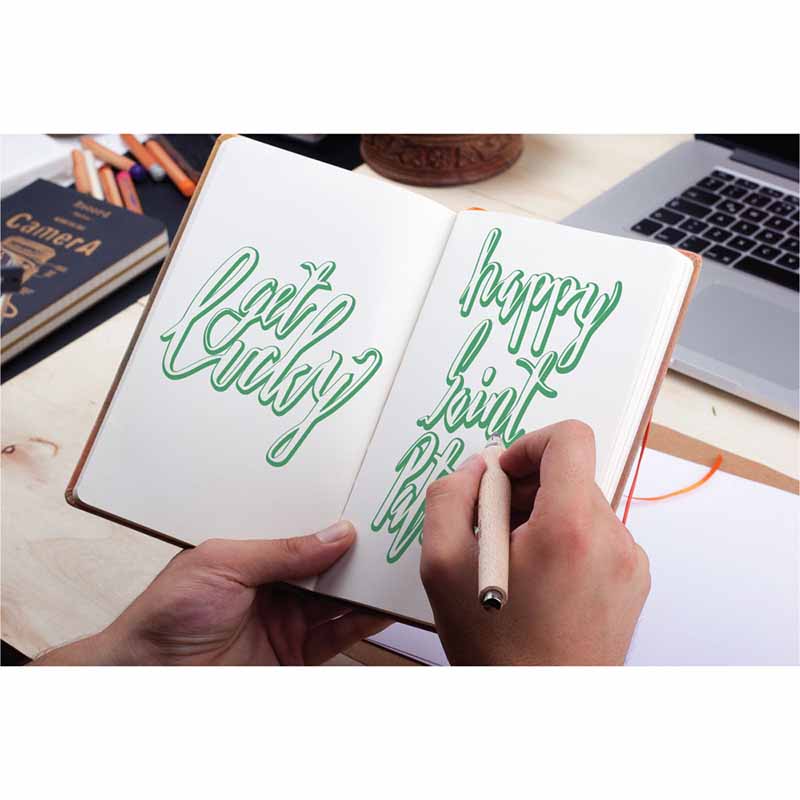 CamerA
get
Lucky
happy
Saint
Pat